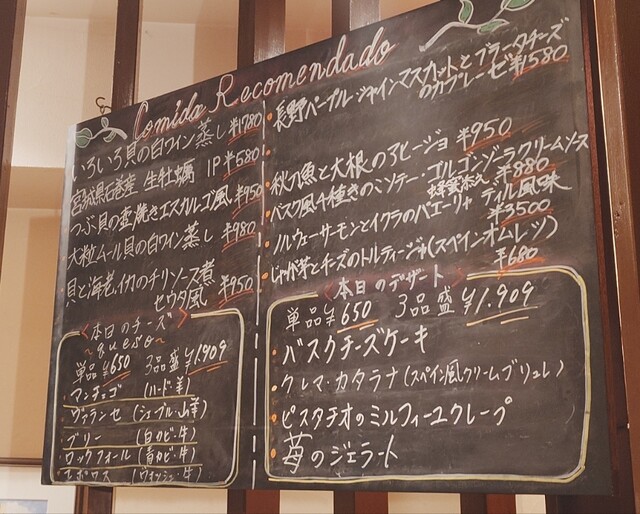 Comida Recomendado
いろいろ貝の白ワイン蒸し ¥1780
宮城県石巻産 生牡蠣 1P ¥580
つぶ貝の壺焼きエスカルゴ風 ¥950
大粒ムール貝の白ワイン蒸し ¥980
貝と海老、イカのチリソース煮
セウタ風 ¥950
<本日のチーズ>
~queso~
単品¥650 3品盛¥1,909
・マンチェゴ (ハード・羊)
・ヴァランセ (シェーブル・山羊)
・ブリー (白カビ・牛)
・ロックフォール (青カビ・羊)
・エポワス (ウォッシュ・牛)
・長野パープル・シャインマスカットとブラータチーズ
のカプレーゼ ¥1580
・秋刀魚と大根のアヒージョ ¥950
・バスク風4種きのこソテー・ゴルゴンゾーラクリームソース
蜂蜜添え ¥880
・ノルウェーサーモンとイクラのパエーリャ ディル風味
¥3500
・じゃが芋とチーズのトルティージャ(スペインオムレツ)
¥680
<本日のデザート>
単品¥650 3品盛¥1,909
・バスクチーズケーキ
・クレマ・カタラナ(スペイン風クリームブリュレ)
・ピスタチオのミルフィーユクレープ
・苺のジェラート